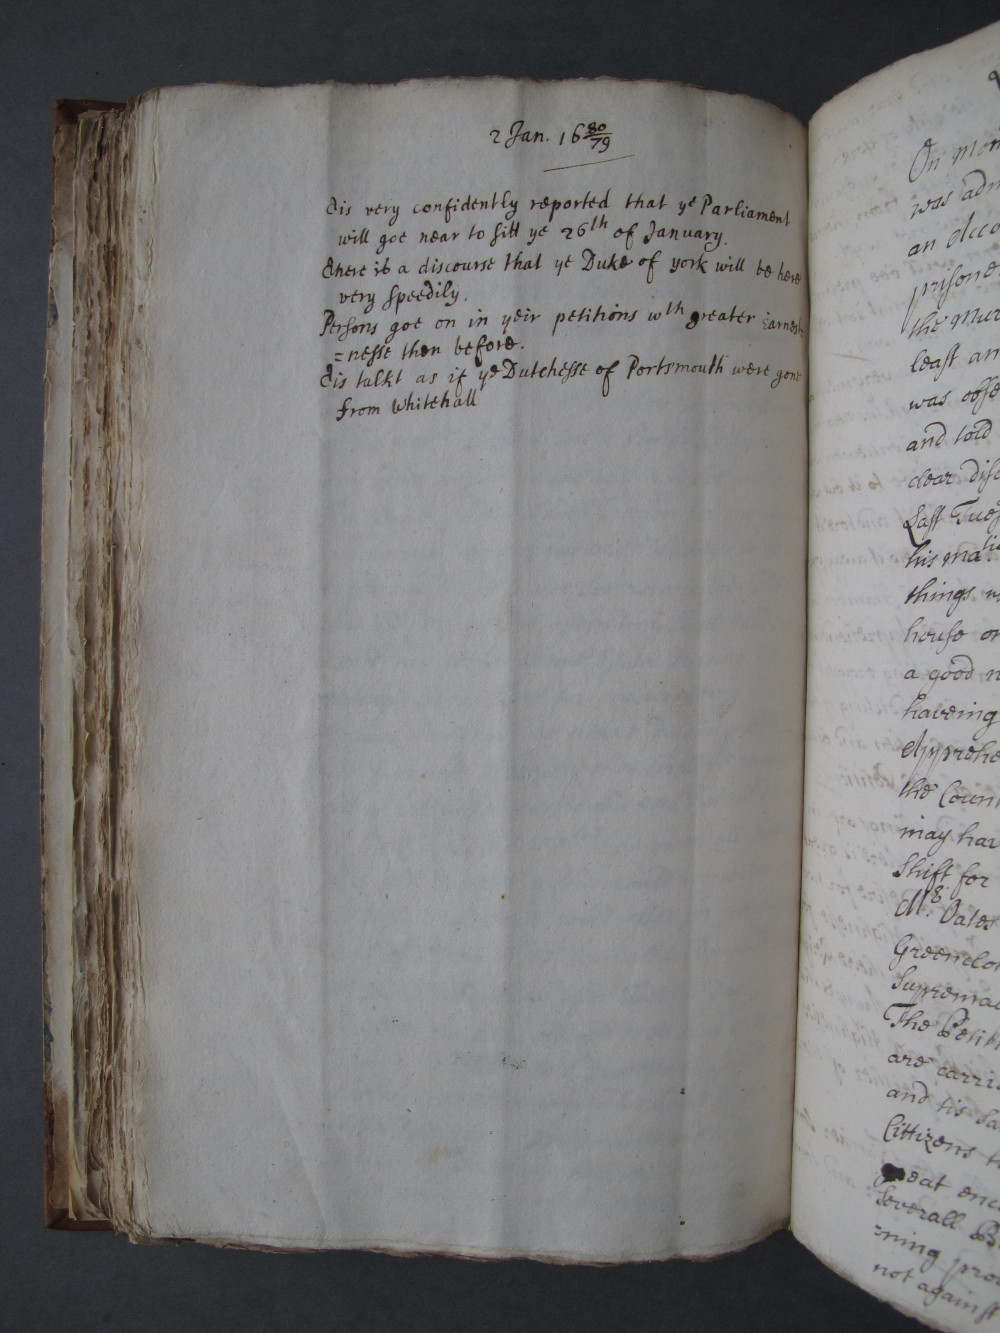 2 Jan. 16 80/79
Tis very confidently reported that ye Parliament
will goe near to sitt ye 26th of January.
There is a discourse that ye Duke of york will be here
very speedily.
Persons goe on in yeir petitions wth greater Earnest=
=nesse then before.
Tis talkt as if ye Dutchesse of Portsmouth were gone
from Whitehall
On mon
was adm
an Acco
prisone
the mur
least an
was obse
and told
clear disc
Last Tues
his matie
things w
house on
a good n
haveing
Apprehe
the Coun
may hav
shift for
Mr. Oates
Greenclo
Supremac
The Petiti
are carri
and tis sa
Cittizens t
great enc
Severall B
=ning pro
not against